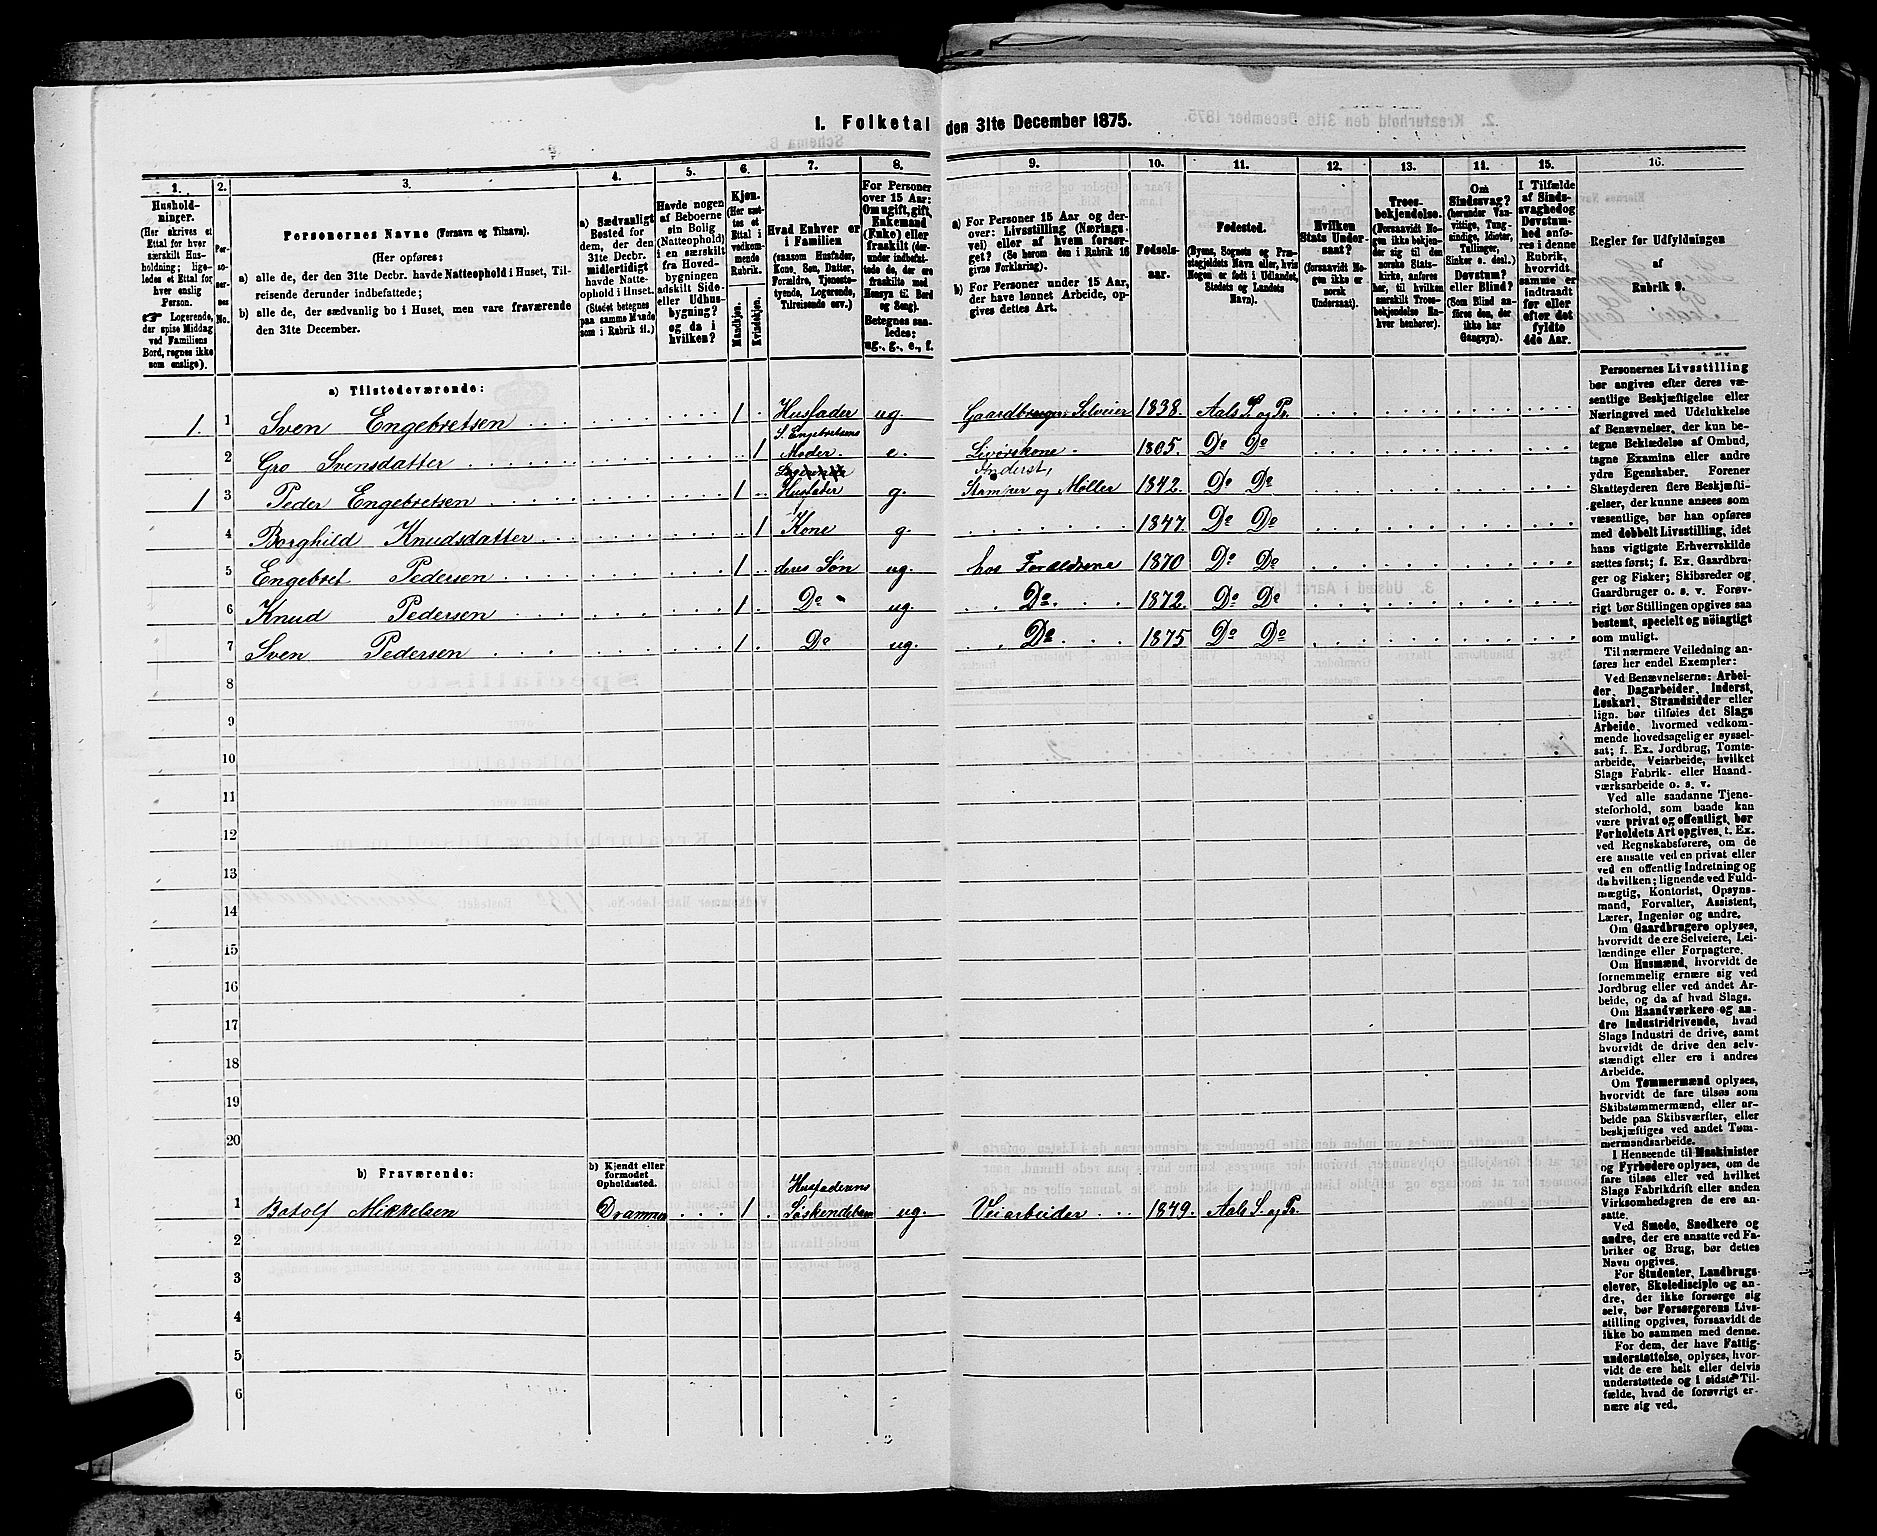 I. Folketal den 31te December 1875.
1. 2. 3. 4. 5. 6. 7. 8. 9. 10. 11. 12. 13. 14. 15. 16.
Hushold-
ninger.
(Her skrives et
Ettal for hver
særskilt Hus-
holdning; lige-
ledes et Ettal for
hver enslig
Person.
☞ Logerende,
der spise Middag
ved Familiens
Bord, regnes ikke
som enslige).
Per-
so-
ner-
nes
No.
Personernes Navne (Fornavn og Tilnavn).
(Her opføres:
a) alle de, der den 31te Decbr. havde Natteophold i Huset, Til-
reisende derunder indbefattede;
b) alle de, der sædvanlig bo i Huset, men vare fraværende
den 31te December.
a) Sædvanligt
Bosted for
dem, der den
31te Decbr.
midlertidigt
havde Natte-
ophold i Huset.
(Stedet betegnes
paa samme Maade
som i Rubrik 11.)
Havde nogen
af Beboerne
sin Bolig
(Natteophold)
i en særskilt
fra Hoved-
bygningen
adskilt Side-
eller Udhus-
bygning?
og da i
hvilken?
Kjøn.
(Her sæt-
tes et
Ettal i
vedkom-
mende
Rubrik.
Mandkjøn.
Kvindekjøn.
Hvad Enhver er
i Familien
(saasom Husfader,
Kone, Søn, Datter,
Forældre, Tjeneste-
tyende, Logerende,
Tilreisende osv.)
For Personer
over 15 Aar:
Om ugift, gift,
Enkemand
(Enke) eller
fraskilt (der-
under indbefat-
tede de, der ere
fraskilte med
Hensyn til Bord
og Seng).
Betegnes saa-
ledes:
ug., g., e., f.
a) For Personer 15 Aar og der-
over: Livsstilling (Nærings-
vei) eller af hvem forsør-
get? (Se herom den i Rubrik 16
givne Forklaring).
b) For Personer under 15 Aar,
der have lønnet Arbeide, op-
gives dettes Art.
Fødsels-
aar.
Fødested.
(Byens, Sognets og Præ-
stegjeldets Navn eller, hvis
Nogen er født i Udlandet,
Stedets og Landets
Navn).
Hvilken
Stats Under-
saat?
(forsaavidt No-
gen ikke er
norsk
Undersaat).
Troes-
bekjendelse.
(Forsaavidt No-
gen ikke bekjen-
der sig til den
norske Stats-
kirke, anføres
her, til hvilken
særskilt Troes-
bekjendelse En-
hver henhører).
Om
Sindssvag?
(herunder Van-
vittige, Tung-
sindige, Idioter,
Tullinger,
Sinker o. desl.)
Døvstum?
eller Blind?
(Som Blind an-
føres den, der
ikke har
Gangsyn).
I Tilfælde
af Sinds-
svaghed og
Døvstum-
hed anføres
i denne
Rubrik,
hvorvidt
samme er
indtraadt
før eller
efter det
fyldte
4de Aar.
Regler for Udfyldningen
af
Rubrik 9.
a) Tilstedeværende:
1. 1 Sven Engebretsen 1 Husfader ug. Gaardbruger Selveier 1838. Aals S. og Pr.
2 Gro Svensdatter 1 S. Engebretsens Moder. e. Livørskone 1805. Do Do
1 3 Peder Engebretsen 1 Husfader g. Inderst, Stamper og Møller 1842. Do Do
4 Borghild Knudsdatter 1 Kone g 1847. Do Do
5 Engebret Pedersen 1 deres Søn ug. hos Forældrene 1870 Do Do
6 Knud Pedersen 1 Do ug. Do 1872. Do Do
7 Sven Pedersen 1 Do ug. Do 1875 Do Do
8
9
10
11
12
13
14
15
16
17
18
19
20
b) Fraværende:
b) Kjendt eller
formodet
Opholdssted.
1 Botolf Mikkelsen Drammen 1 Husfaderens Søskendebarn ug. Veiarbeider 1849. Aals S. og Pr.
2
3
4
5
6
Personernes Livsstilling
bør angives efter deres væ-
sentlige Beskjæftigelse eller
Næringsvei med Udelukkelse
af Benævnelser, der kun be-
tegne Beklædelse af Ombud,
tagne Examina eller andre
ydre Egenskaber. Forener
Skatteyderen flere Beskjæfti-
gelser, der kunne ansees som
væsentlige, bør han opføres
med dobbelt Livsstilling, idet
hans vigtigste Erhvervskilde
sættes først; f. Ex. Gaardbru-
ger og Fisker; Skibsreder og
Gaardbruger o. s. v. Forøv-
rigt bør Stillingen opgives saa
bestemt, specielt og nøiagtigt
som muligt.
Til nærmere Veiledning an-
føres her endel Exempler:
Ved Benævnelserne: Arbei-
der, Dagarbeider, Inderst,
Løskarl, Strandsidder eller
lign. bør tilføies det Slags
Arbeide, hvormed vedkom-
mende hovedsagelig er syssel-
sat; f. Ex. Jordbrug, Tomte-
arbeide, Veiarbeide, hvilket
Slags Fabrik- eller Haand-
værksarbeide o. s. v.
Ved alle saadanne Tjene-
steforhold, som baade kan
være privat og offentligt, bør
Forholdets Art opgives, t. Ex.
ved Regnskabsførere, om de
ere ansatte ved en privat eller
ved en offentlig Indretning og
da hvilken; lignende ved Fuld-
mægtig, Kontorist, Opsyns-
mand, Forvalter, Assistent,
Lærer, Ingeniør og andre.
Om Gaardbrugere oplyses,
hvorvidt de ere Selveiere, Lei-
lændinge eller Forpagtere.
Om Husmænd, hvorvidt de
fornemmelig ernære sig ved
Jordbrug eller ved andet Ar-
beide, og da af hvad Slags.
Om Haandværkere og an-
dre Industridrivende, hvad
Slags Industri de drive, samt
hvorvidt de drive den selv-
stændigt eller ere i andres
Arbeide.
Om Tømmermænd oplyses,
hvorvidt de fare tilsøs som
Skibstømmermænd, eller ar-
beide paa Skibsværfter, eller
beskjæftiges ved andet Tøm-
mermandsarbeide.
I Henseende til Maskinister
og Fyrbødere oplyses, om de
fare tilsøs eller ved hvilket
Slags Fabrikdrift eller anden
Virksomhedsgren de ere an-
satte.
Ved Smede, Snedkere og
andre, der ere ansatte ved Fa-
briker og Brug, bør dettes
Navn opgives.
For Studenter, Landbrugs-
elever, Skoledisciple og an-
dre, der ikke forsørge sig
selv, bør Forsørgerens Livs-
stilling opgives, forsaavidt de
ikke bo sammen med denne.
For dem, der have Fattig-
understøttelse, oplyses, hvor-
vidt de ere helt eller delvis
understøttede og i sidste Til-
fælde, hvad de forøvrigt er-
nære sig ved.